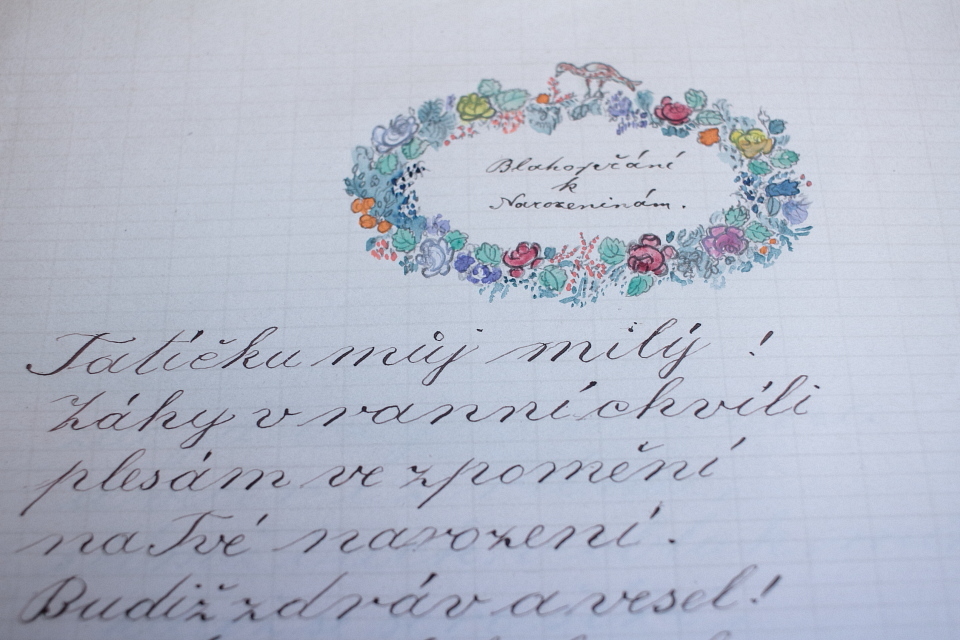 Blahopřání
k
Narozeninám.
Tatíčku můj milý !
Záhy v ranní chvíli
plesám ve zpomění
na Tvé narození.
Budiž zdráv a vesel!